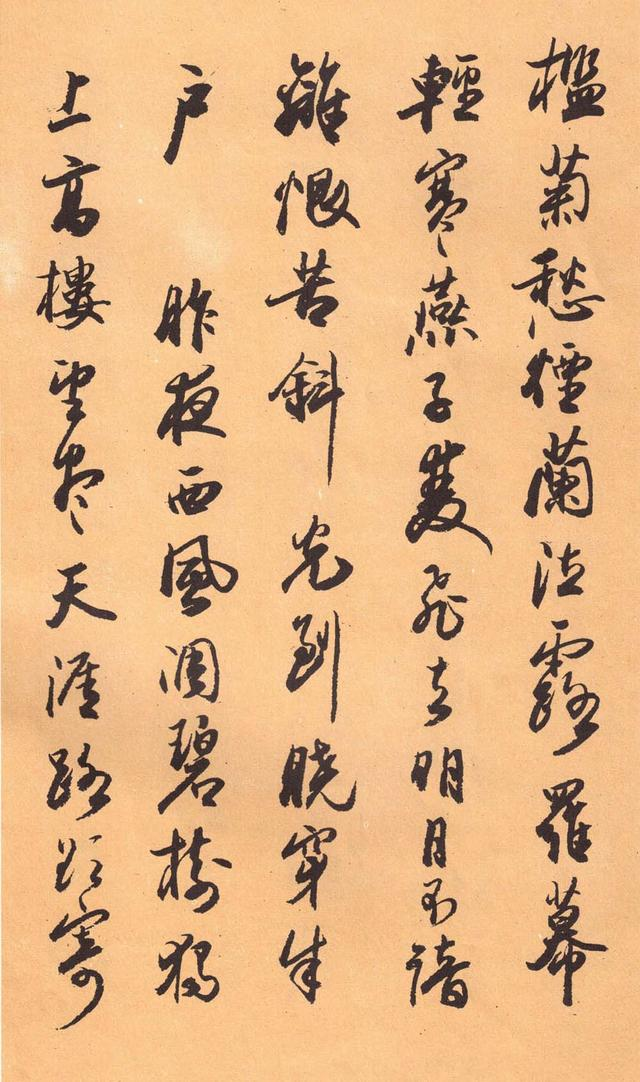 檻菊愁煙蘭泣露羅幕
輕寒燕子雙飛去明月不諳
離恨苦斜光到曉穿朱
户 昨夜西風凋碧樹獨
上高樓望盡天涯路欲寄